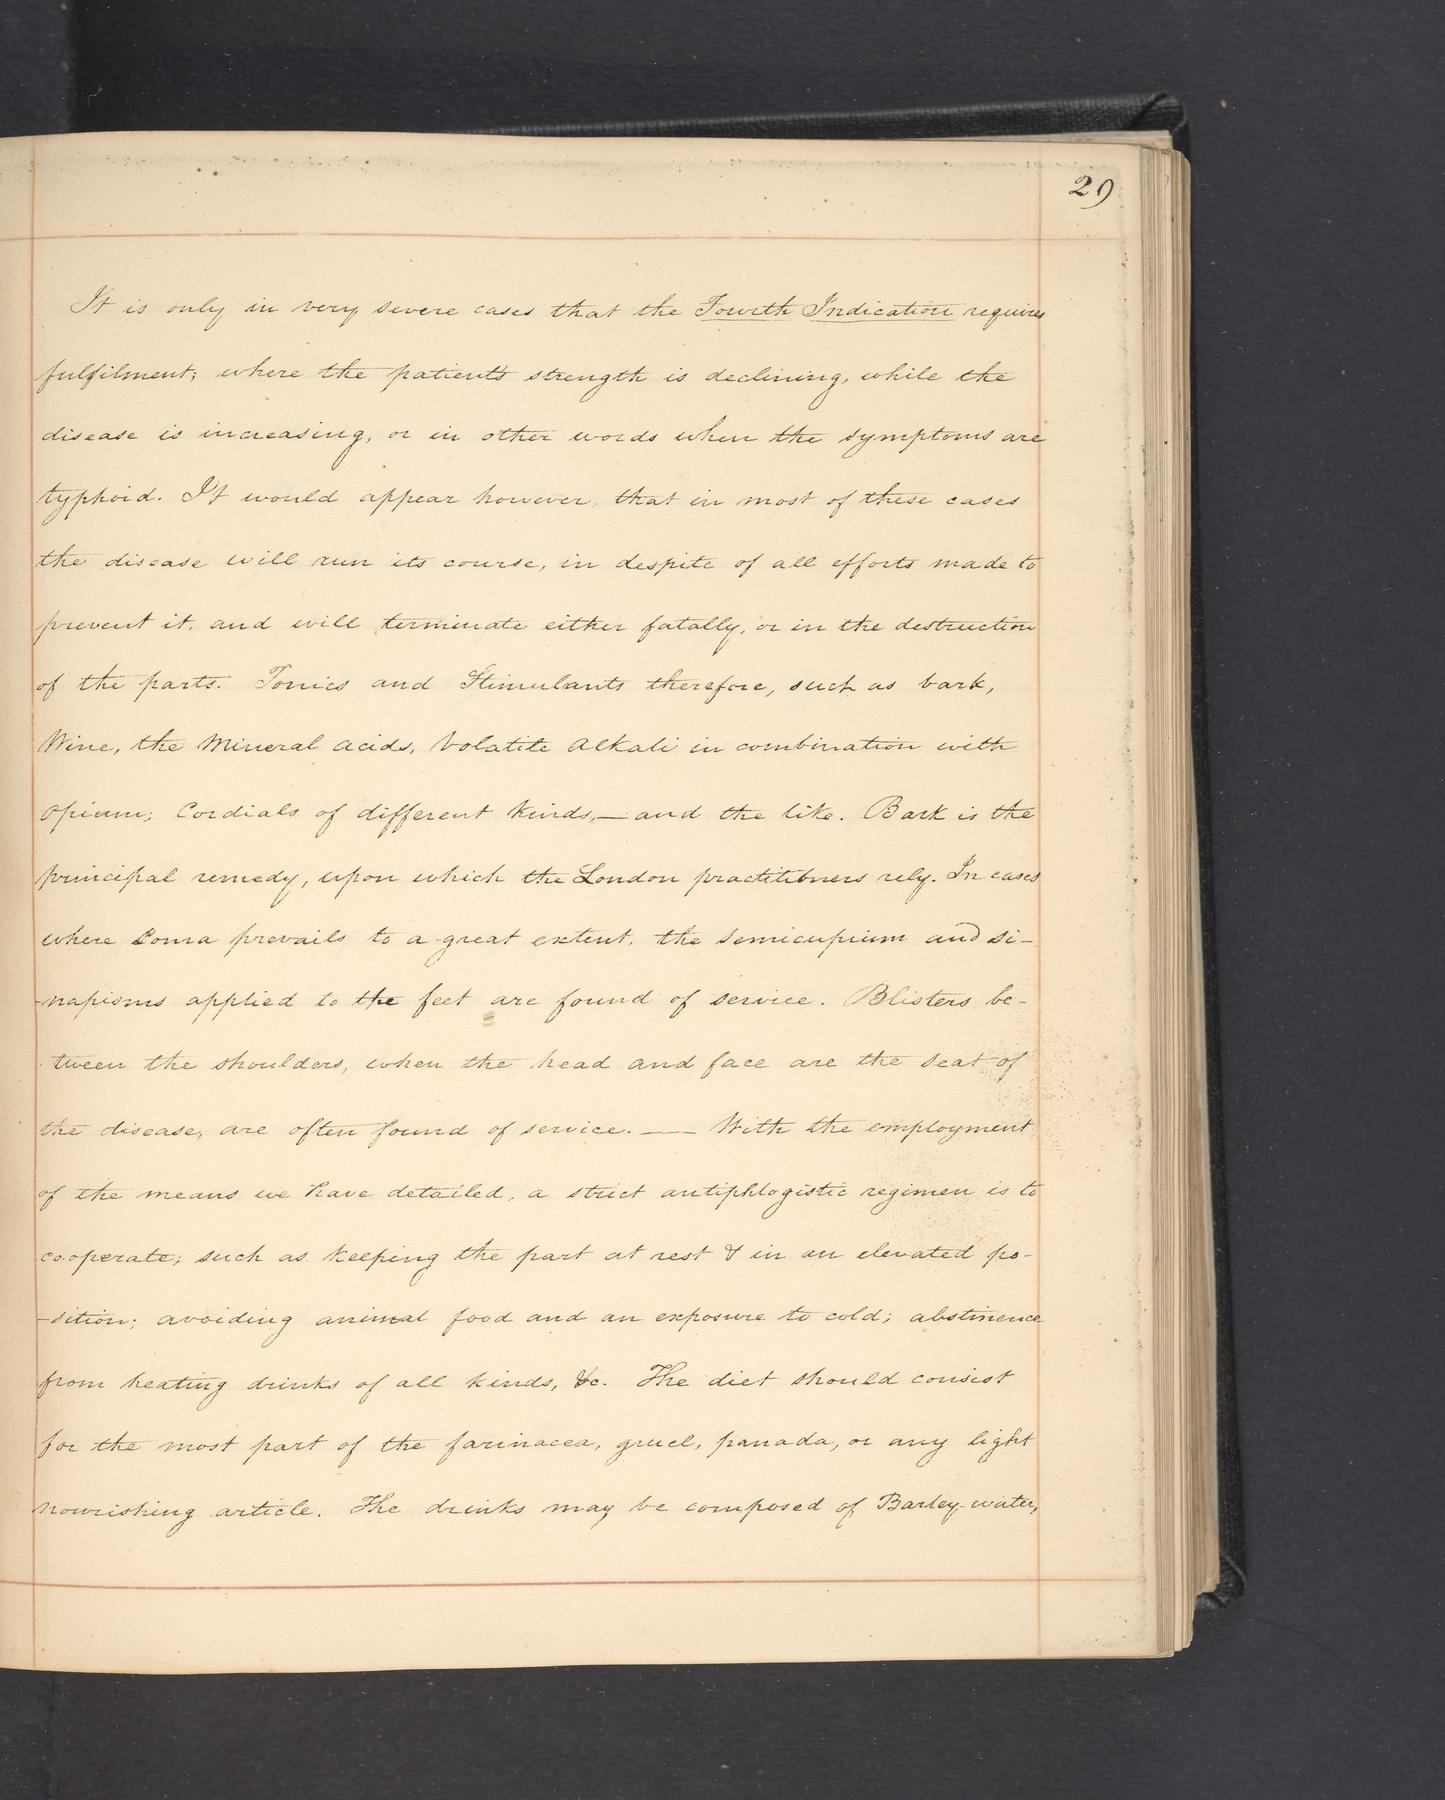 29
It is only in very severe cases that the Fourth Indication requires
fulfilment; where the patient's strength is declining, while the
disease is increasing, or in other words when the symptoms are
typhoid. It would appear however, that in most of these cases
the disease will run its course, in despite of all efforts made to
prevent it, and will terminate either fatally, or in the destruction
of the parts. Tonics and Stimulants therefore, such as bark,
Wine, the Mineral acids, Volatile Alkali in combination with
Opium; Cordials of different kinds,— and the like. Bark is the
principal remedy, upon which the London practitioners rely. In cases
where Coma prevails to a great extent, the semicupium and si-
-napisms applied to the feet are found of service. Blisters be-
tween the shoulders, when the head and face are the seat of
the disease, are often found of service. — With the employment
of the means we have detailed, a strict antiphlogistic regimen is to
co-operate; such as keeping the part at rest & in an elevated po-
-sition; avoiding animal food and an exposure to cold; abstinence
from heating drinks of all kinds, &c. The diet should consist
for the most part of the farinacea, gruel, panada, or any light
nourishing article. The drinks may be composed of Barley-water,